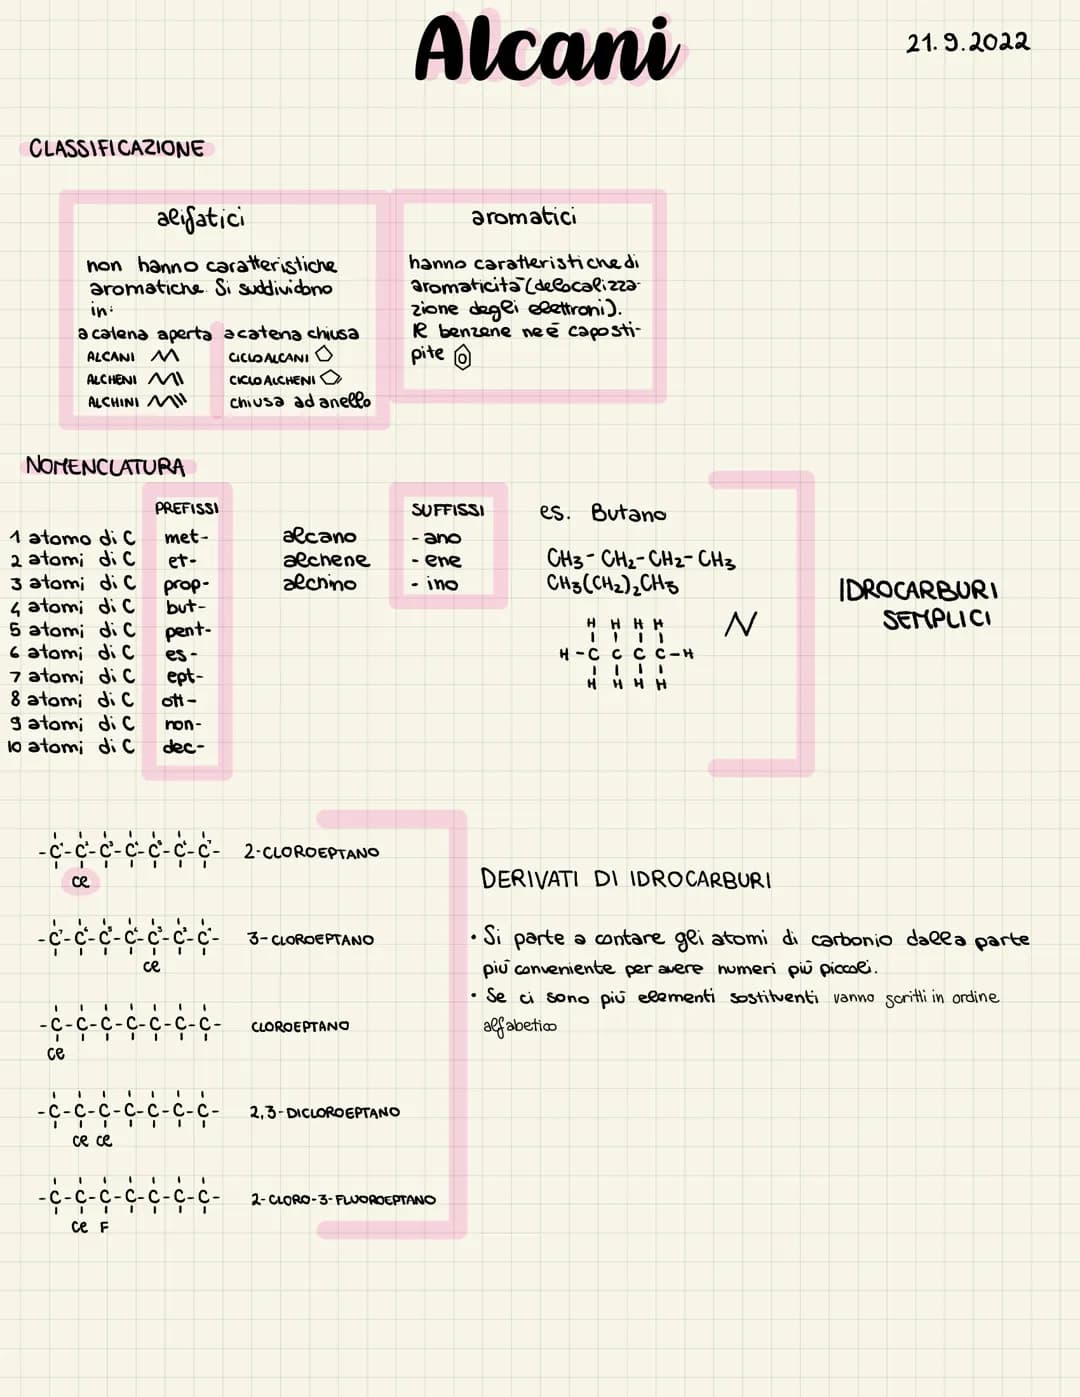 Alcani
21.9.2022
CLASSIFICAZIONE
alifatici
non hanno caratteristiche
aromatiche. Si suddividono
in:
a catena aperta
ALCANI
ALCHENI
ALCHINI
a catena chiusa
CICLOALCANI
CICLOALCHENI
chiusa ad anello
aromatici
hanno caratteristiche di
aromaticità (delocalizza-
zione degli elettroni).
Il benzene ne è caposti-
pite
NOMENCLATURA
PREFISSI
1 atomo di C met-
2 atomi di C et-
3 atomi di C prop-
4 atomi di C but-
5 atomi di C pent-
6 atomi di C es-
7 atomi di C ept-
8 atomi di C ott-
9 atomi di C non-
10 atomi di C dec-
SUFFISSI
alcano -ano
alchene -ene
alchino -ino
es. Butano
CH3-CH2-CH2-CH3
CH3(CH2)2CH3
H H H H
H-C C C C-H
H H H H
IDROCARBURI
SEMPLICI
-C¹-C²-C³-C⁴-C⁵-C⁶-C⁷- 2-CLOROEPTANO
Cl
-C⁷-C⁶-C⁵-C⁴-C³-C²-C- 3-CLOROEPTANO
Cl
-C-C-C-C-C-C-C- CLOROEPTANO
Cl
-C-C-C-C-C-C-C- 2,3-DICLOROEPTANO
Cl Cl
-C-C-C-C-C-C-C- 2-CLORO-3-FLUOROEPTANO
Cl F
DERIVATI DI IDROCARBURI
• Si parte a contare gli atomi di carbonio dalla parte
più conveniente per avere numeri più piccoli.
• Se ci sono più elementi sostituenti vanno scritti in ordine
alfabetico